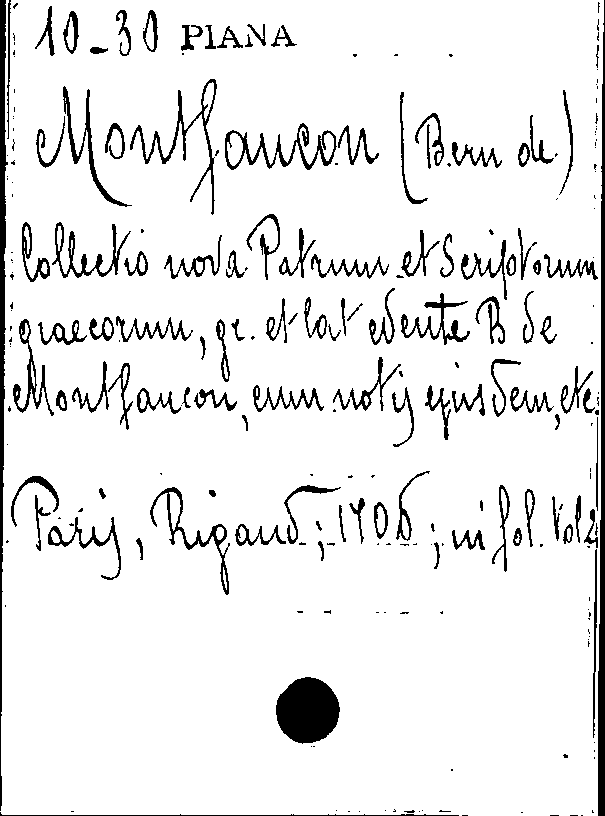 10-30 PIANA
Montfaucon (Bern de)
Collectio nova Patrum et Scriptorum
graecorum, gr. et lat edente B de
Montfaucon, cum notis ejusdem, etc.
Paris, Rigaud; 1706; in fol. Vol 2